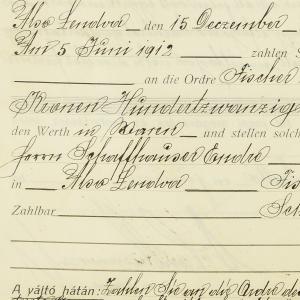 Alsó Lendva den 15 Deczember
Am 5 Juni 1912 zahlen S
an die Ordre Fischer
Kronen Hundertzwanzig
den Werth in Waren und stellen solch
Herrn Schaffhauser Endre
in Alsó Lendva Fis
Zahlbar Sch
A váltó hátán: Zahlen Sie an die Ordre de